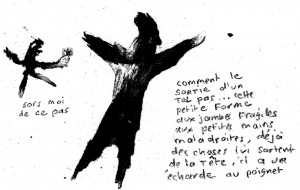 sors moi
de ce pas
comment le
sortir d'un
tal pas... cette
petite forme
aux jambes fragiles
aux petites mains
maladroites, déjà
des choses lui sortent
de la tête, il a une
écharde au poignet